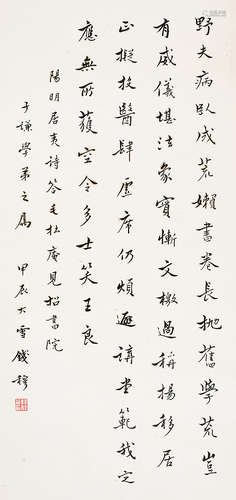 野夫病臥成荒嬾書卷長拋舊學荒豈
有威儀堪法象實慚文檄過稱揚移居
正擬投醫肆虛席仍煩避講堂範我定
應無所獲空令多士笑王良
陽明居夷詩答毛拙庵見招書院
子謙學弟之屬
甲辰大雪錢穆